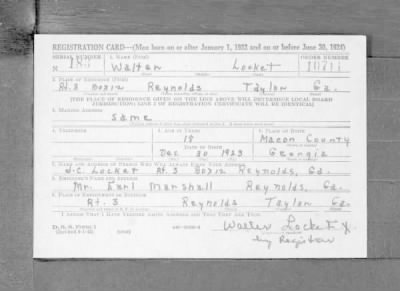 REGISTRATION CARD—(Men born on or after January 1, 1922 and on or before June 30, 1924)
SERIAL NUMBER 1. NAME (Print) ORDER NUMBER
Walter Locket
(First) (Middle) (Last)
2. PLACE OF RESIDENCE (Print)
Rt. 3 Box 12 Reynolds Taylor Ga.
[THE PLACE OF RESIDENCE GIVEN ON THE LINE ABOVE WILL DETERMINE LOCAL BOARD
JURISDICTION; LINE 2 OF REGISTRATION CERTIFICATE WILL BE IDENTICAL]
3. MAILING ADDRESS
Same
4. TELEPHONE 5. AGE IN YEARS 6. PLACE OF BIRTH
18 Macon County
DATE OF BIRTH
Dec 30 1923 Georgia
7. NAME AND ADDRESS OF PERSON WHO WILL ALWAYS KNOW YOUR ADDRESS
J.C. Locket Rt. 3 Box 12 Reynolds, Ga.
8. EMPLOYER'S NAME AND ADDRESS
Mr. Earl Marshall Reynolds, Ga.
9. PLACE OF EMPLOYMENT OR BUSINESS
Rt. 3 Reynolds Taylor Ga.
I AFFIRM THAT I HAVE VERIFIED ABOVE ANSWERS AND THAT THEY ARE TRUE.
D. S. S. Form 1
Walter Locket X
by Registrar